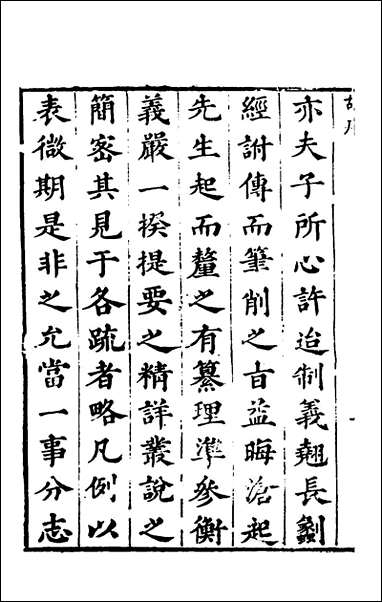 亦夫子所心許迨制義翹長剿
經討傳而筆削之㫖益晦滄起
先生起而釐之有纂理準參衡
義嚴一揆提要之精詳叢說之
簡密其見于各疏者略凡例以
表微期是非之允當一事分志